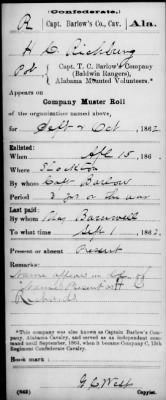 (Confederate.)
R Capt. Barlow's Co., Cav. Ala.
H C Richburg
Pvt Capt. T. C. Barlow's Company
(Baldwin Rangers),
Alabama Mounted Volunteers.*
Appears on
Company Muster Roll
of the organization named above,
for Sept & Oct, 1862.
Enlisted:
When Apl 15, 186
Where Stockton
By whom Capt Barlow
Period 3 yrs or the war
Last paid:
By whom Barnwell
To what time Sept 1, 1862.
Present or absent Present
Remarks:
Name appears in
Richards
*This company was also known as Captain Barlow's Company, Alabama Cavalry, and served as an independent command until September, 1863, when it became Company C, 15th Regiment Confederate Cavalry.
Book mark:
G. C. West
(642) Copyist.